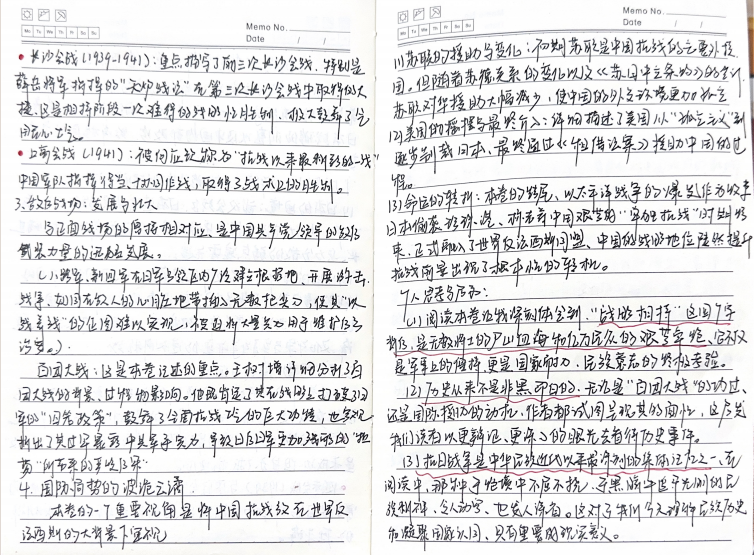 Memo No.
Mo Tu We Th Fr Sa Su
Date / /
• 长沙会战(1939-1941):重点描写了前三次长沙会战,特别是
薛岳将军指挥的"天炉战法"在第三次长沙会战中取得的大
捷,这是相持阶段一次难得的战略性胜利,极大鼓舞了全
国军心士气。
• 上高会战(1941):被何应钦称为"抗战以来最精彩的一战"
中国军队指挥得当、协同作战,取得了战术上的胜利。
3. 敌后战场:发展与壮大
与正面战场的僵持相对应,是中国共产党领导的敌后
力量的迅猛发展。
(八路军、新四军在日军与敌后内广泛建立根据地,开展游击
战争,如同在敌人的心脏地带插入无数把尖刀,使其"以
战养战"的企图难以实现,被迫将大量兵力用于维护后方
治安。)
百团大战:这是本卷论述的重点。王树增详细分析了百
团大战的背景、过程和影响。他既肯定了其在战略上打击日
军的"囚笼政策",鼓舞了全国抗战士气的巨大功绩,也客观
指出了其过早暴露中共军事实力,导致日后日军更加残酷的"扫
荡"
4. 国际局势的波诡云谲
本卷的一个重要视角是将中国抗战放在世界反
法西斯的大背景下审视
Memo No.
Mo Tu We Th Fr Sa Su
Date / /
(1)苏联的援助与变化:初期苏联是中国抗战的主要外援
国。但随着苏德关系的变化以及《苏日中立条约》的签订
苏联对华援助大幅减少,使中国的外交环境更加孤立
(2)美国的摇摆与最终介入:详细描述了美国从"孤立主义"到
逐步制裁日本、最终通过《租借法案》援助中国的过
程。
(3)命运的转折:本卷的结尾,以太平洋战争的爆发作为收束
日本偷袭珍珠港,标志着中国艰苦的"单独抗战"时期结
束,正式融入了世界反法西斯同盟,中国的战略地位陡然提升
抗战前景出现了根本性的转机。
个人思考与启示:
(1)阅读本卷让我深刻体会到,"战略相持"这四个字
背后,是无数将士的尸山血海和亿万民众的艰苦牺牲,它不仅
是军事上的僵持,更是国家耐力、民族意志的终极考验。
(2)历史从来不是非黑即白的,无论是"百团大战"的功过
还是国际援助的动机,作者都试图呈现其多面性,这启发
我们读者以更辩证、更深入的眼光去看待历史事件。
(3)抗日战争是中华民族近代以来最深刻的集体记忆之一,在
阅读中,那种于绝境中不屈不挠、于黑暗中坚守光明的民
族精神,令人动容,也发人深省。这对于我们今天理解民族历史
和凝聚国家认同,具有重要的现实意义。